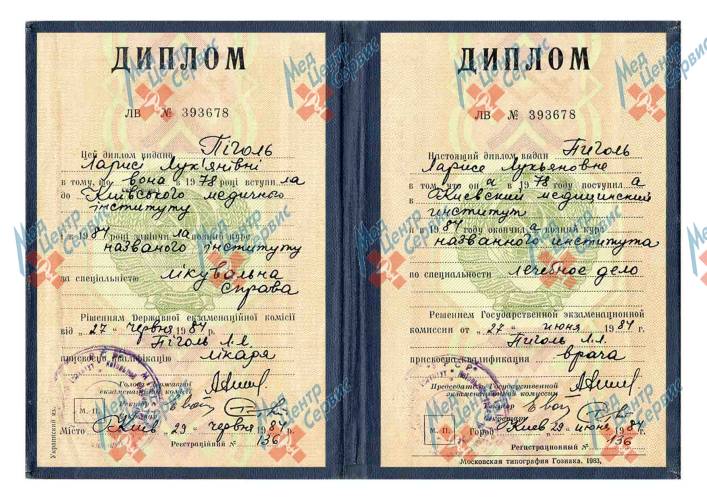 ДИПЛОМ
ЛВ № 393678
Цей диплом видано Піголь
Ларисі Лук'янівні
в тому, що вона в 1978 році вступила
до Київського медичного
інституту
і в 1984 році закінчила повний курс
названого інституту
за спеціальністю лікувальна
справа
Рішенням Державної екзаменаційної комісії
від „27“ червня 1984 р.
Піголь Л.Л.
присвоєно кваліфікацію лікаря
Голова Державної
екзаменаційної комісії
Ректор
Секретар
М. П.
Місто Київ „29“ червня 1984 р.
Реєстраційний № 136
Украинский яз.
ДИПЛОМ
ЛВ № 393678
Настоящий диплом выдан Пиголь
Ларисе Лукьяновне
в том, что она в 1978 году поступила
в Киевский медицинский
институт
и в 1984 году окончила полный курс
названного института
по специальности лечебное дело
Решением Государственной экзаменационной
комиссии от „27“ июня 1984 г.
Пиголь Л.Л.
присвоена квалификация врача
Председатель Государственной
экзаменационной комиссии
Ректор
Секретарь
М. П.
Город Киев „29“ июня 1984 г.
Регистрационный № 136
Московская типография Гознака. 1983.
Мед Центр Сервис
Мед Центр Сервис
Мед Центр Сервис
Мед Центр Сервис
Мед Центр Сервис
Мед Центр Сервис